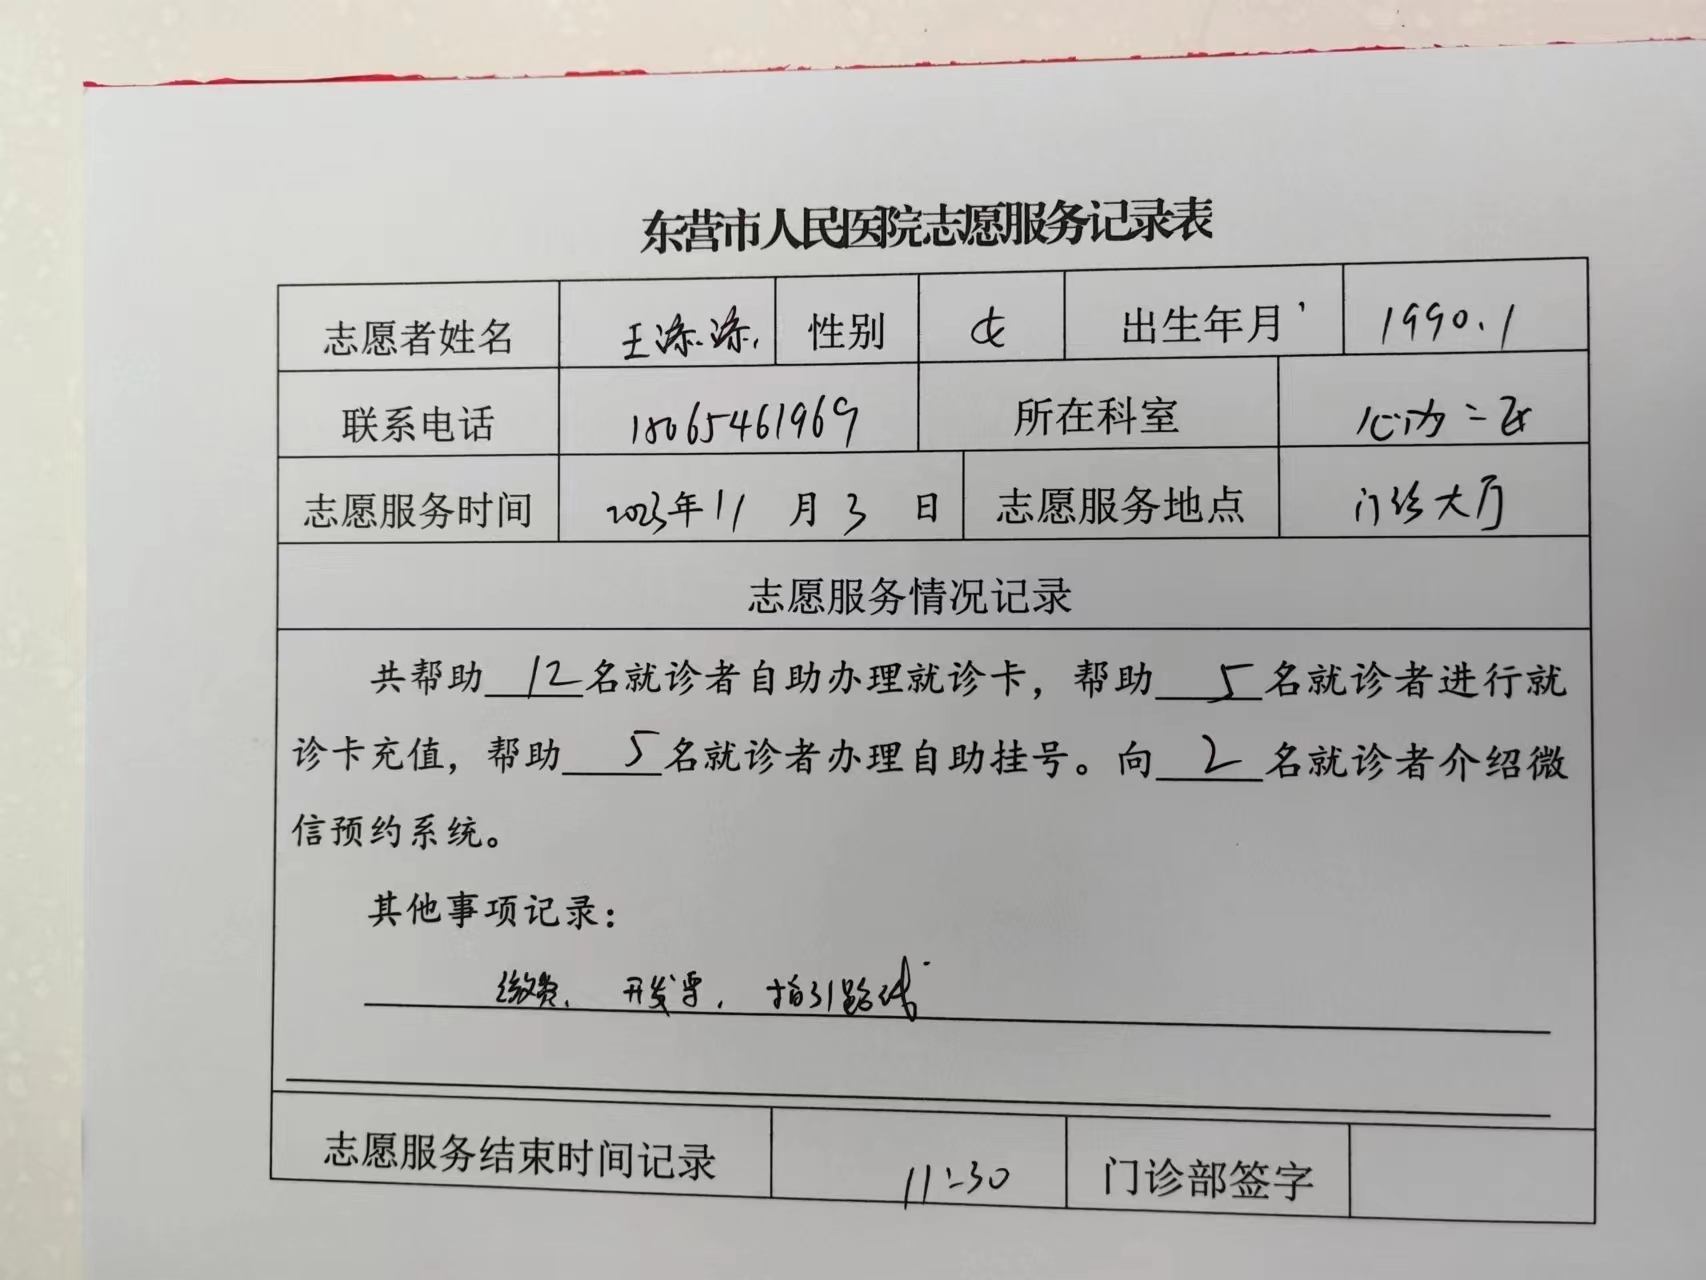 东营市人民医院志愿服务记录表
志愿者姓名 王添添 性别 女 出生年月 1990.1
联系电话 18065461969 所在科室 心内二区
志愿服务时间 2023年11月3日 志愿服务地点 门诊大厅
志愿服务情况记录
共帮助12名就诊者自助办理就诊卡，帮助5名就诊者进行就
诊卡充值，帮助5名就诊者办理自助挂号。向2名就诊者介绍微
信预约系统。
其他事项记录：
缴费、开发票，指引路线
志愿服务结束时间记录 11:30 门诊部签字